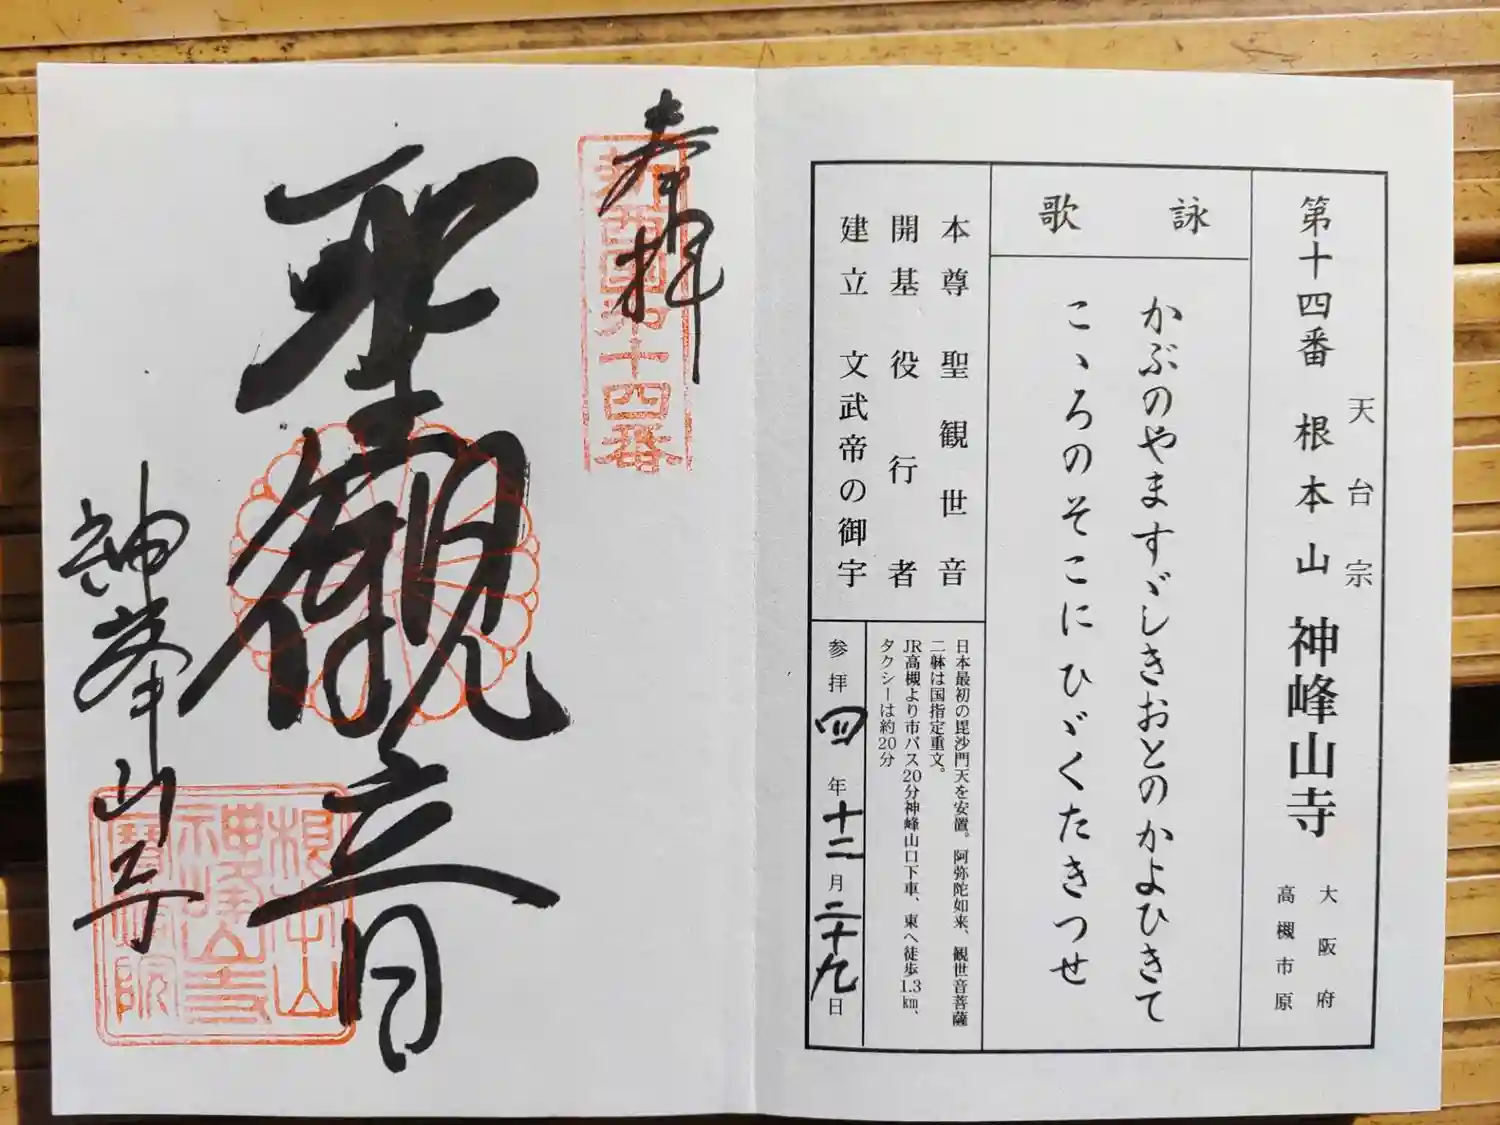 天台宗
第十四番 根本山 神峰山寺
大阪府
高槻市原
詠歌
かぶのやますゞしきおとのかよひきて
こゝろのそこにひゞくたきつせ
本尊 聖観世音
開基 役行者
建立 文武帝の御宇
日本最初の毘沙門天を安置。阿弥陀如来、観世音菩薩
二躰は国指定重文。
JR高槻より市バス20分神峰山口下車、東へ徒歩1.3㎞、
タクシーは約20分
参拝 四年十二月二十九日
奉拝
新西国第十四番
聖観音
神峯山寺
根本山
神峰山寺
寶塔院